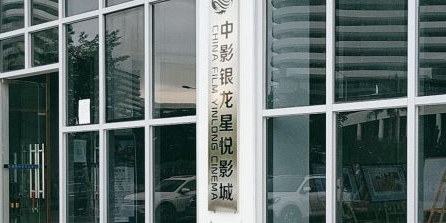 中影银龙星悦影城
CHINA FILM YINLONG CINEMA